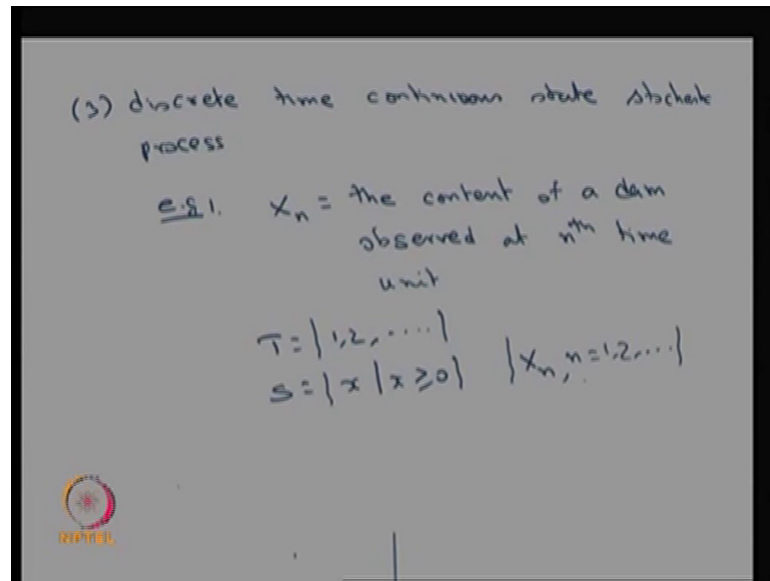 (3) discrete time continuous state stochastic
process
e.g 1. Xn = the content of a dam
observed at nth time
unit
T = {1,2, ....}
S = {x | x ≥ 0} {Xn, n=1,2,...}
NPTEL